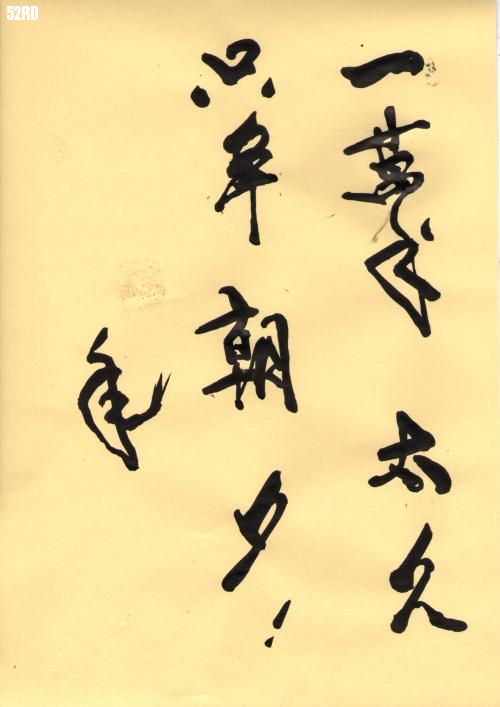 52RD
一萬年太久
只争朝夕!